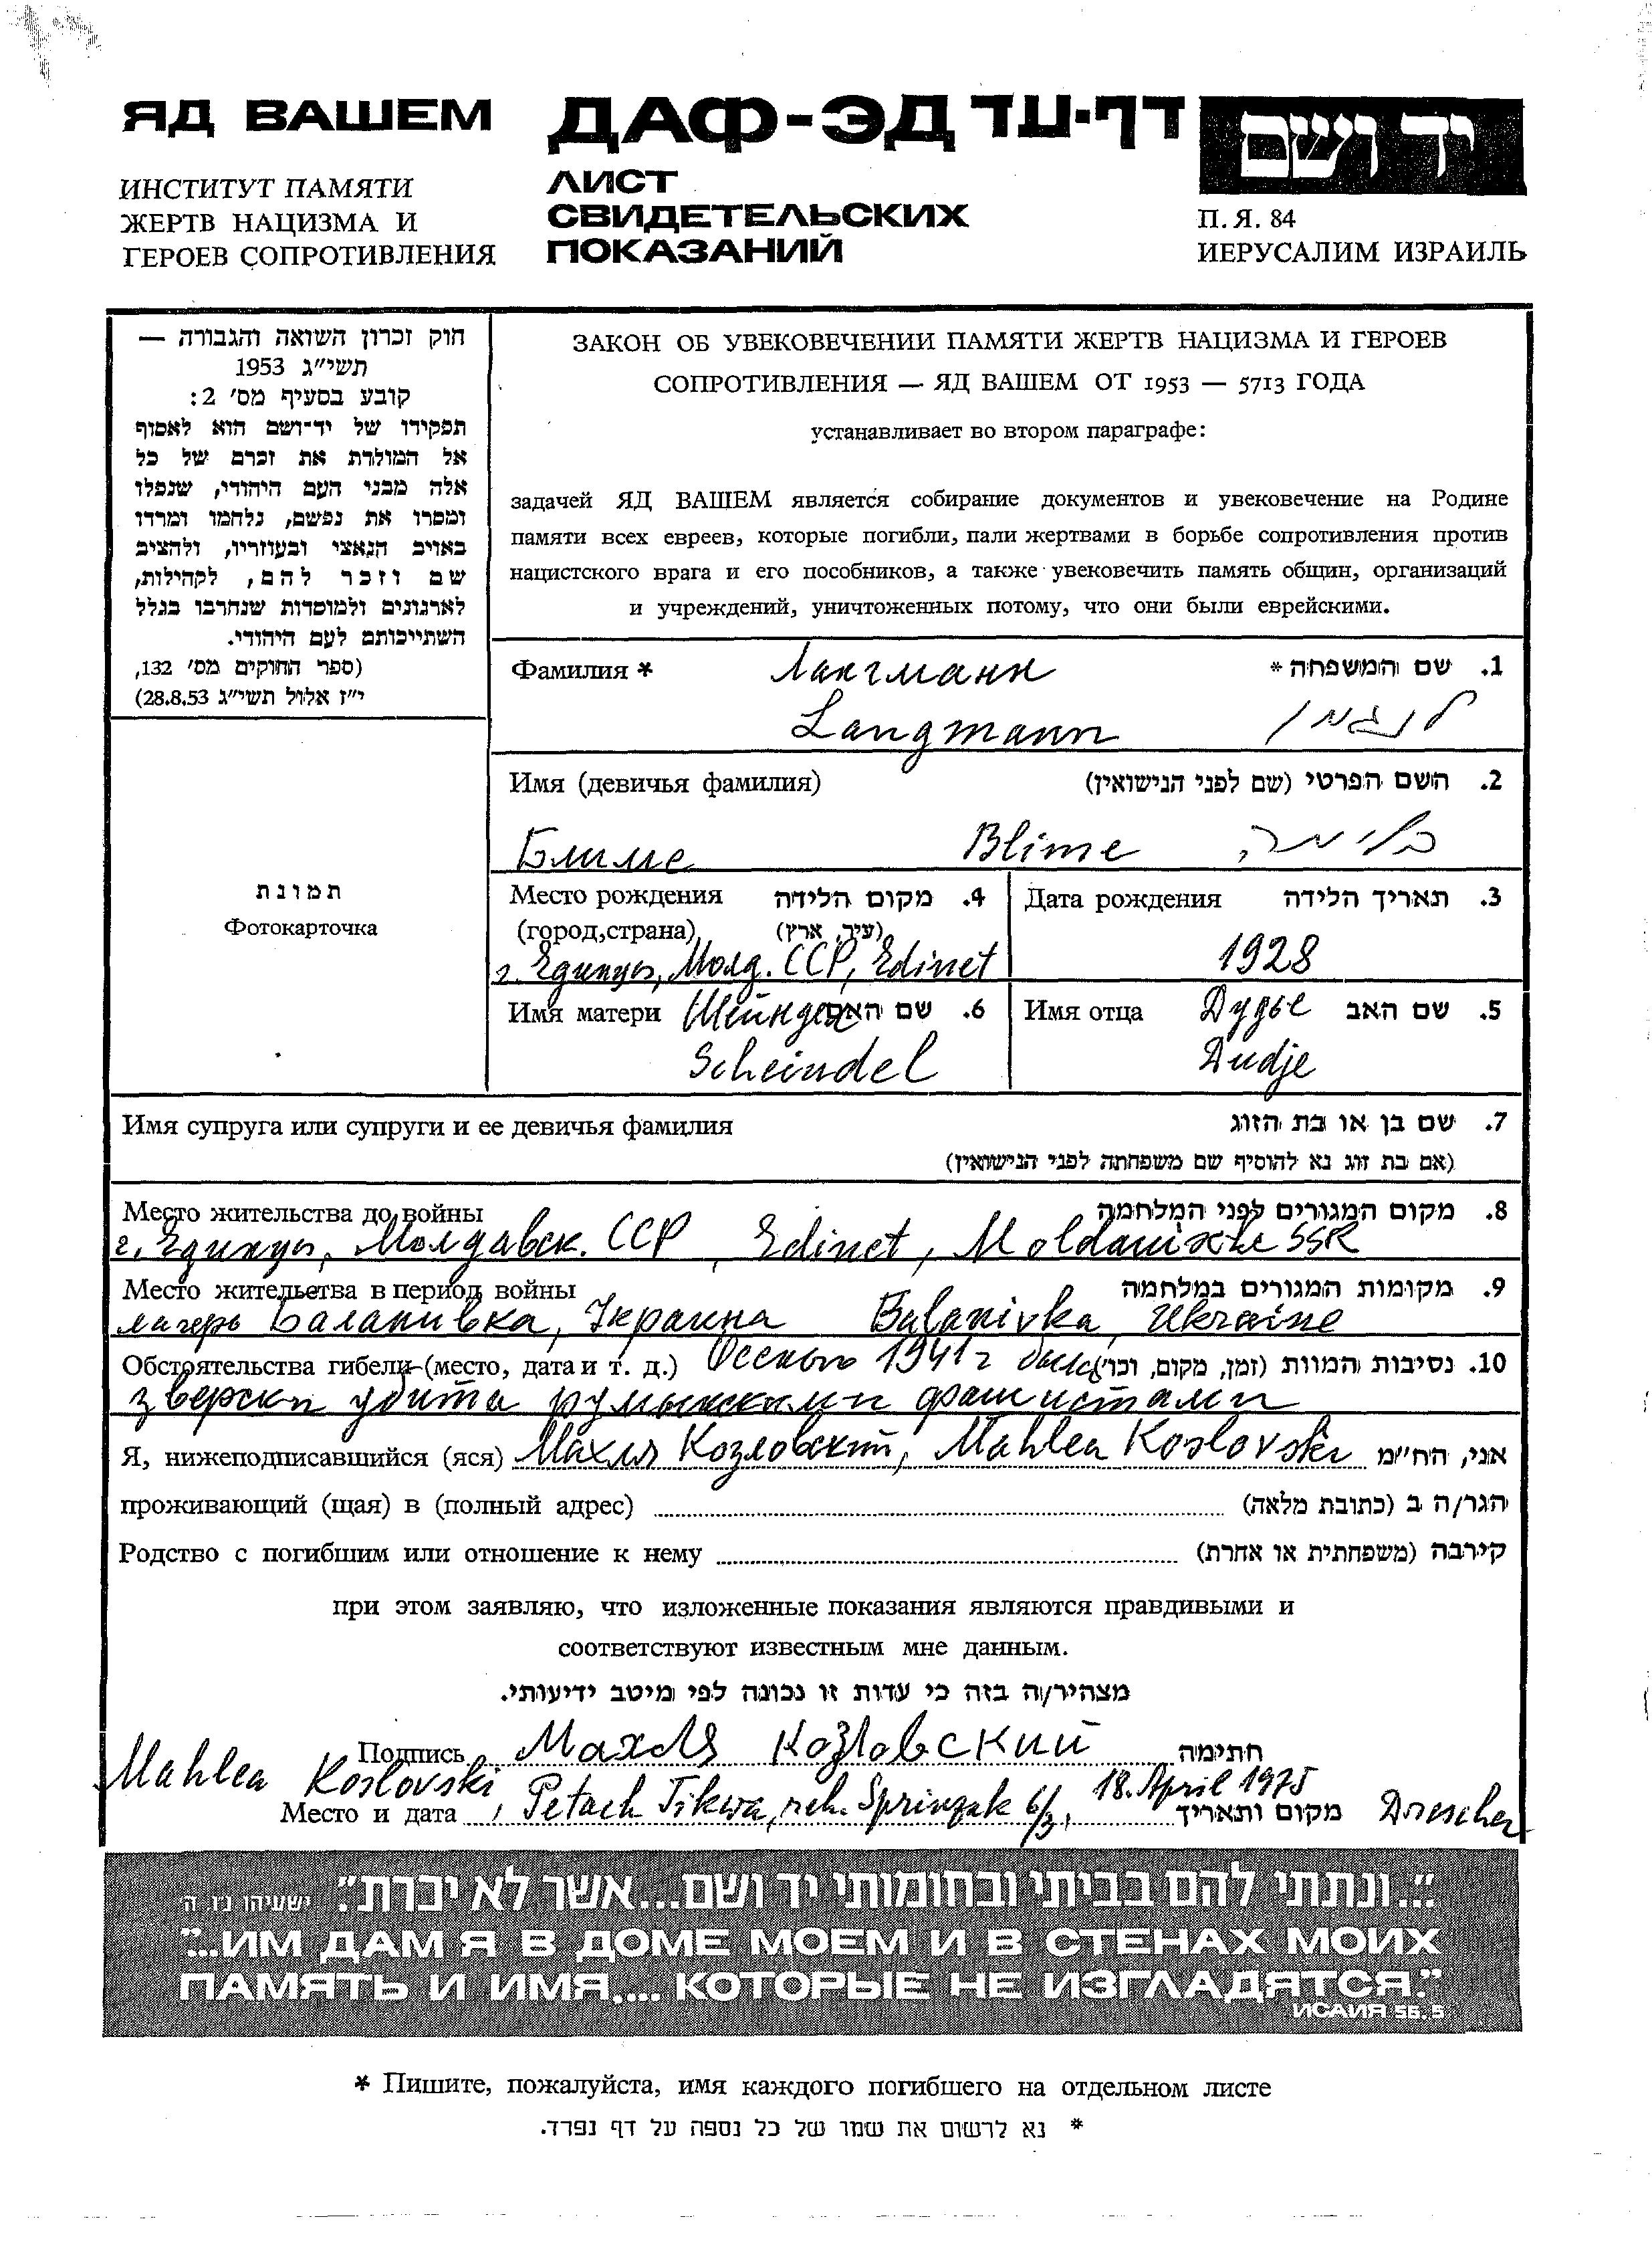 ЯД ВАШЕМ
ИНСТИТУТ ПАМЯТИ
ЖЕРТВ НАЦИЗМА И
ГЕРОЕВ СОПРОТИВЛЕНИЯ
ДАФ-ЭД דף-עד
ЛИСТ
СВИДЕТЕЛЬСКИХ
ПОКАЗАНИЙ
יד ושם
П. Я. 84
ИЕРУСАЛИМ ИЗРАИЛЬ
חוק זכרון השואה והגבורה —
תשי״ג 1953
קובע בסעיף מס׳ 2:
תפקידו של יד־ושם הוא לאסוף
אל המולדת את זכרם של כל
אלה מבני העם היהודי, שנפלו
ומסרו את נפשם, נלחמו ומרדו
באויב הנאצי ובעוזריו, ולהציב
שם וזכר להם, לקהילות,
לארגונים ולמוסדות שנחרבו בגלל
השתייכותם לעם היהודי.
(ספר החוקים מס׳ 132,
י״ז אלול תשי״ג 28.8.53)
ЗАКОН ОБ УВЕКОВЕЧЕНИИ ПАМЯТИ ЖЕРТВ НАЦИЗМА И ГЕРОЕВ
СОПРОТИВЛЕНИЯ — ЯД ВАШЕМ ОТ 1953 — 5713 ГОДА
устанавливает во втором параграфе:
задачей ЯД ВАШЕМ является собирание документов и увековечение на Родине
памяти всех евреев, которые погибли, пали жертвами в борьбе сопротивления против
нацистского врага и его пособников, а также увековечить память общин, организаций
и учреждений, уничтоженных потому, что они были еврейскими.
Фамилия * Лангманн 1. שם המשפחה *
Langmann לנגמן
Имя (девичья фамилия) 2. השם הפרטי (שם לפני הנישואין)
Блиме Blime בלימה,
תמונת
Фотокарточка
Место рождения 4. מקום הלידה
(город,страна) (עיר, ארץ)
г. Единцы, Молд. ССР, Edinet
Дата рождения 3. תאריך הלידה
1928
Имя матери Шейндел 6. שם האם
Scheindel
Имя отца Дудье 5. שם האב
Dudje
Имя супруга или супруги и ее девичья фамилия 7. שם בן או בת הזוג
(אם בת זוג נא להוסיף שם משפחתה לפני הנישואין)
Место жительства до войны 8. מקום המגורים לפני המלחמה
г. Единцы, Молдавск. ССР, Edinet, Moldauische SSR
Место жительства в период войны 9. מקומות המגורים במלחמה
лагерь Балановка, Украина Balanivka, Ukraine
Обстоятельства гибели (место, дата и т. д.) Осенью 1941 г была 10. נסיבות המוות (זמן, מקום, וכו׳)
зверски убита румынскими фашистами
Я, нижеподписавшийся (яся) Махля Козловский, Mahlea Koslovski אני, הח״מ
проживающий (щая) в (полный адрес) הגר/ה ב (כתובת מלאה)
Родство с погибшим или отношение к нему קירבה (משפחתית או אחרת)
при этом заявляю, что изложенные показания являются правдивыми и
соответствуют известным мне данным.
מצהיר/ה בזה כי עדות זו נכונה לפי מיטב ידיעותי.
Подпись Махля Козловский חתימה
Mahlea Koslovski,
Место и дата Petach Tikwa, reh. Sprinzak 6/3, 18. April 1975 מקום ותאריך Drescher
״...ונתתי להם בביתי ובחומותי יד ושם...אשר לא יכרת״. ישעיהו נ״ו ה׳
"...ИМ ДАМ Я В ДОМЕ МОЕМ И В СТЕНАХ МОИХ
ПАМЯТЬ И ИМЯ.... КОТОРЫЕ НЕ ИЗГЛАДЯТСЯ."
ИСАИЯ 56. 5
* Пишите, пожалуйста, имя каждого погибшего на отдельном листе
* נא לרשום את שמו של כל נספה על דף נפרד.